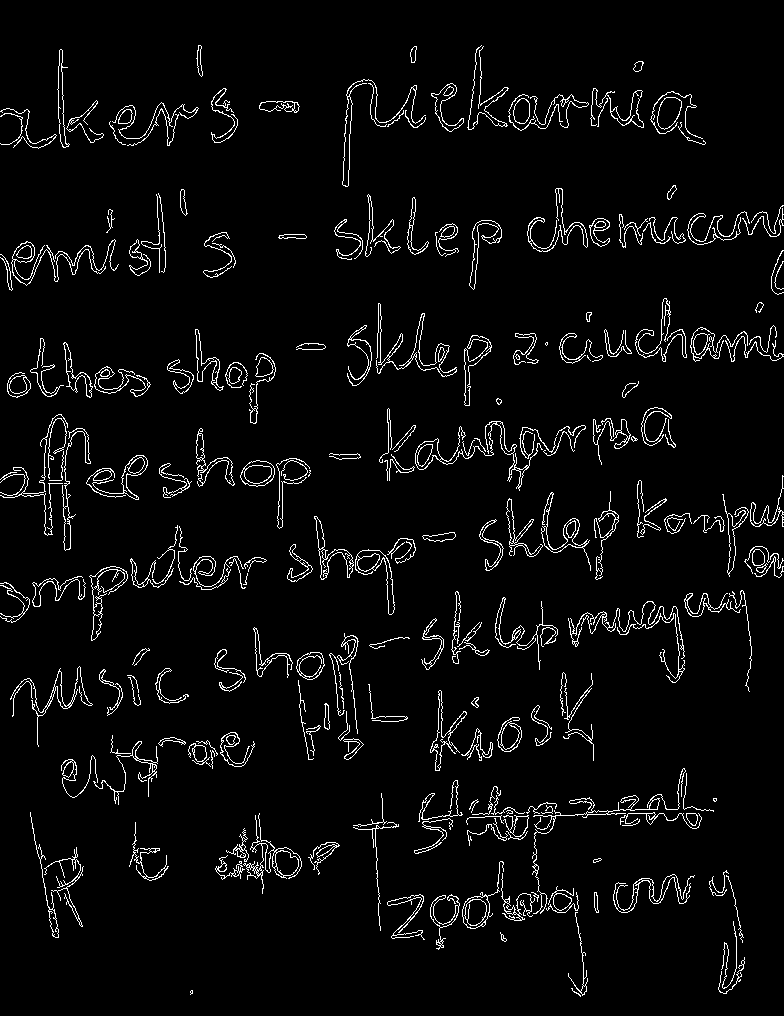 aker's - piekarnia
hemist's - sklep chemiczny
othes shop - sklep z ciuchami
offee shop - kawiarnia
omputer shop - sklep komput
ow
music shop - sklep muzyczny
- kiosk
sklep z zab.
zoologiczny